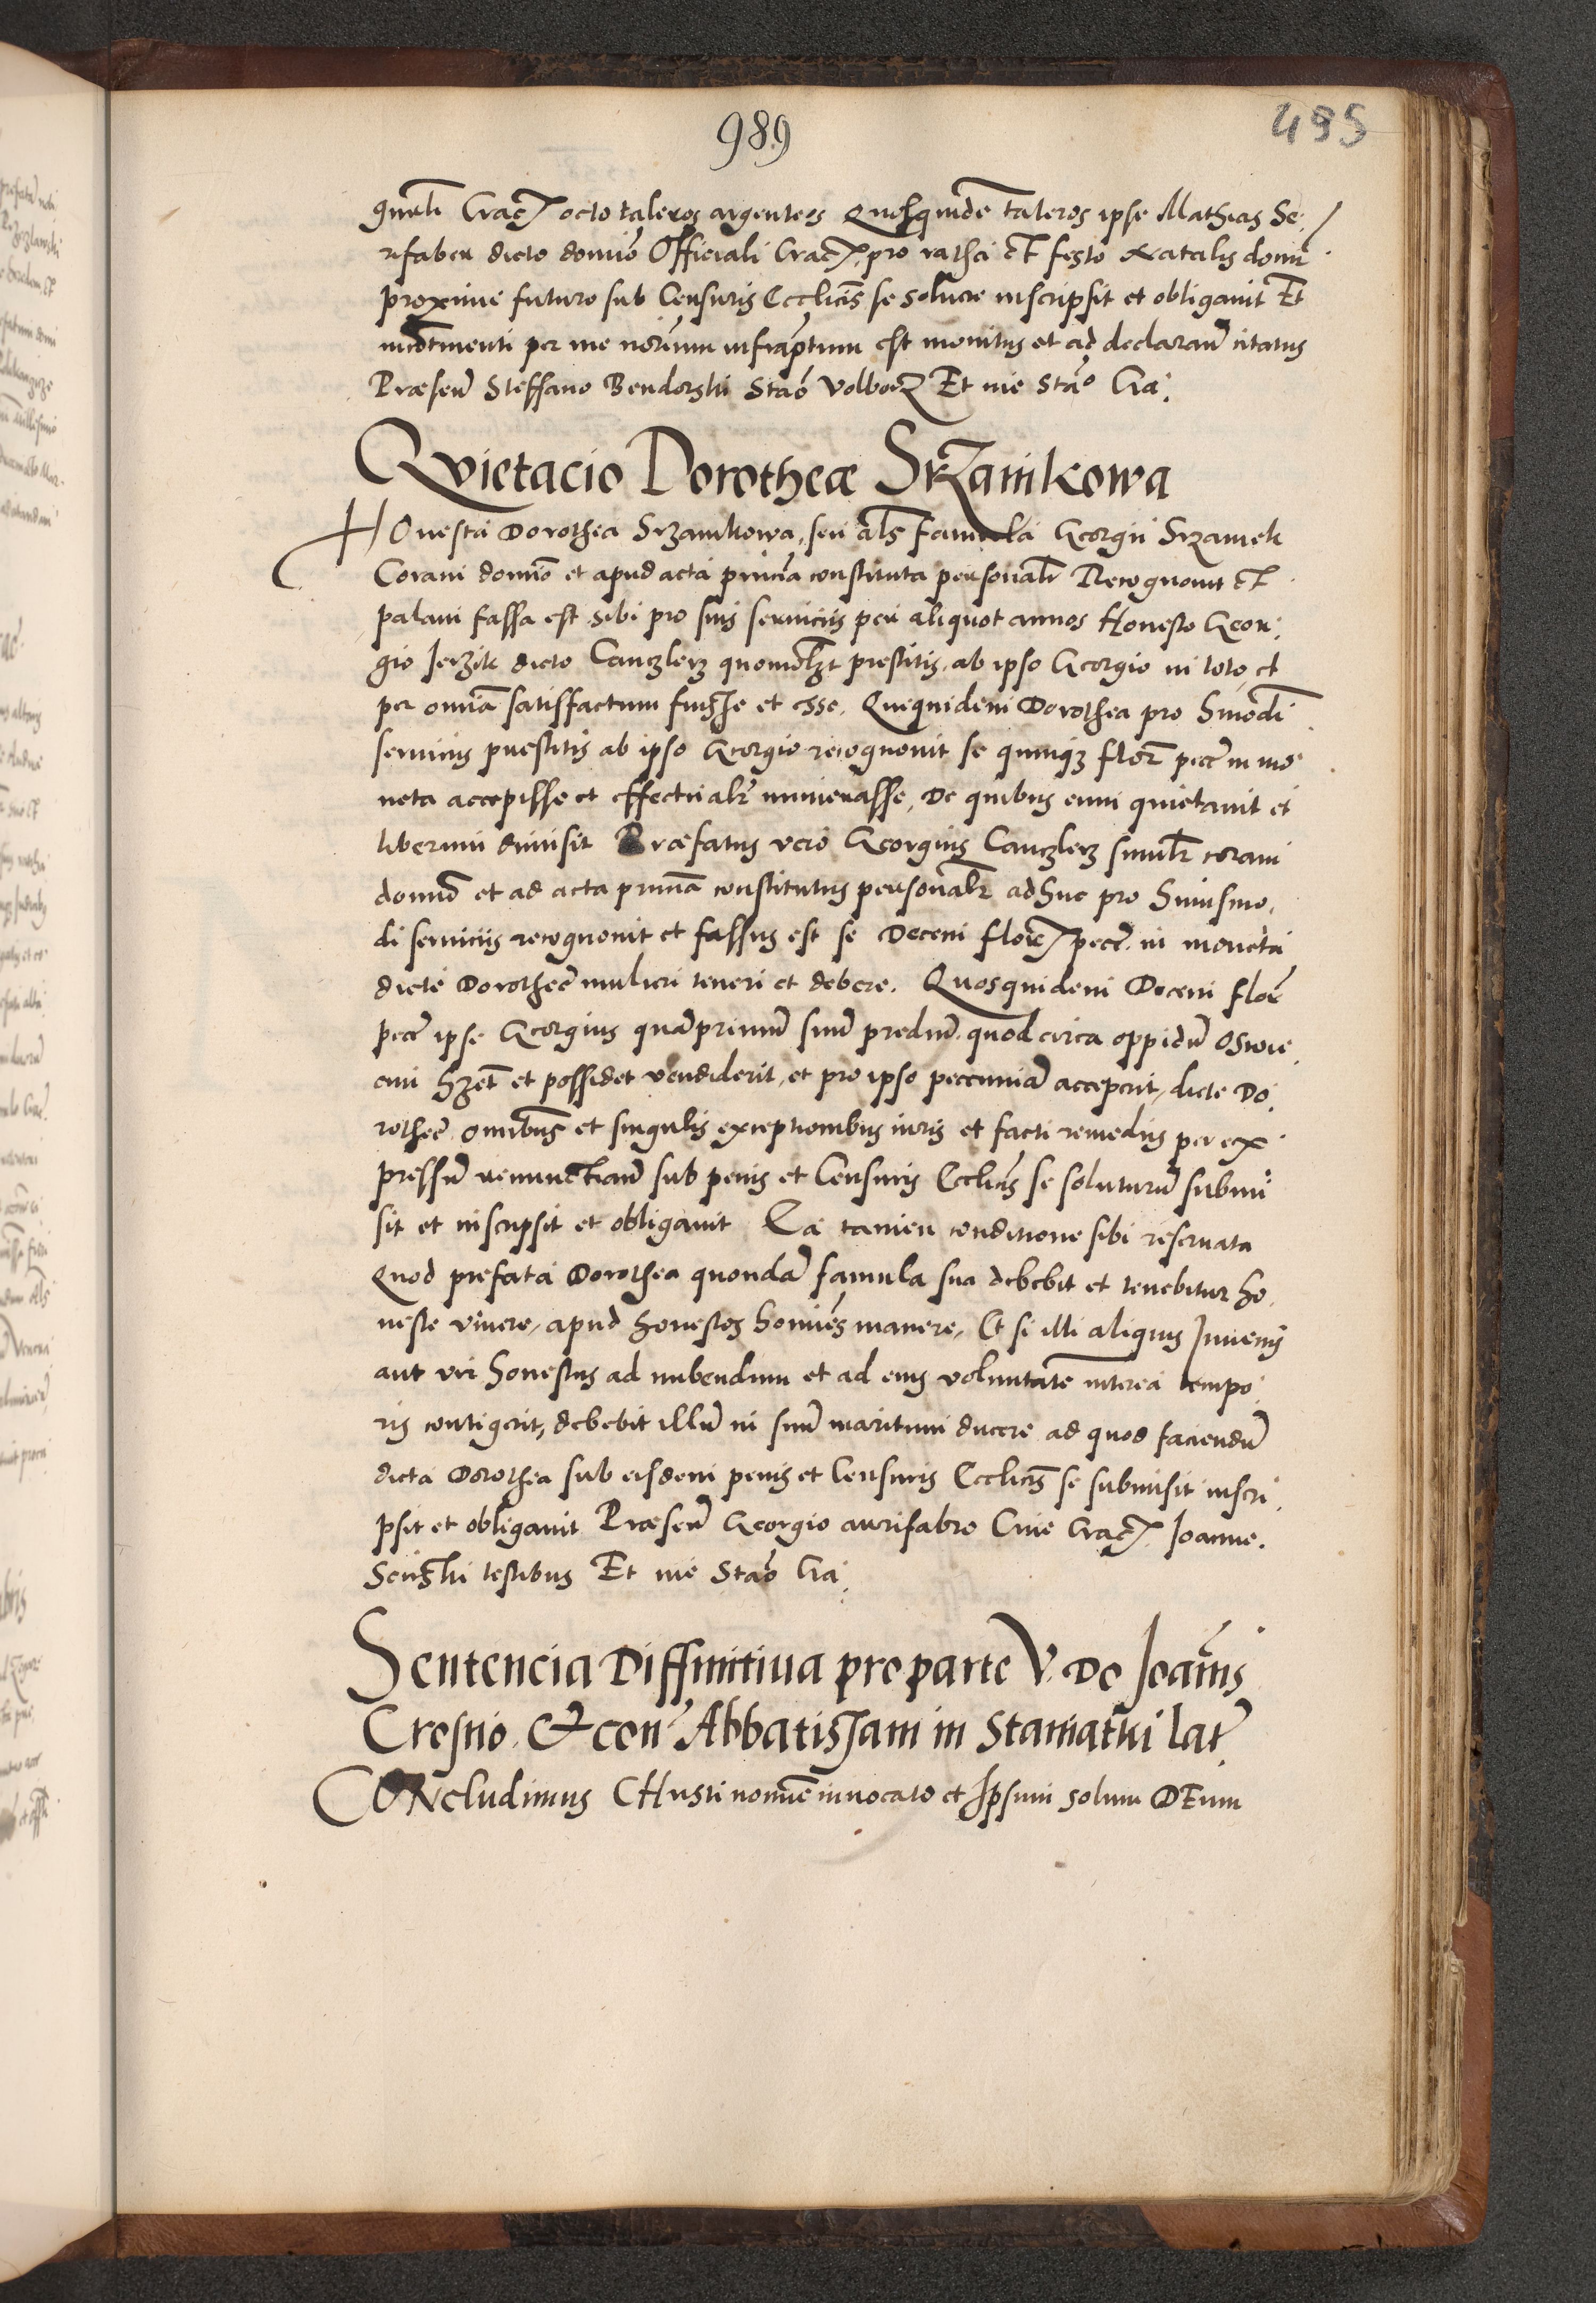 989
495
gnrali Crac. octo taleros argenteos Quosquidē taleros ipse Mathias Se-
rifaber dicto domīo Officiali Crac. pro ratha et festo Natalis domī
proxime futuro sub Censuris Ecclīcis se soluere inscripsit et obligauit Et
per me infrascptum est monitus et ad declarand citatus
Præsen Steffano Bendorski Stāo Volborz Et me Stāo Ga.
Qvietacio Dorotheæ Srzamkowa
HOnesta Dorothea Srzamkowa, seu als famula Georgii Srzamek
Coram domīo et apud acta prńcia constituta personalr Recognouit et
palam fassa est sibi pro suis seruiciis per aliquot annos Honesto Geor-
gio Jerzik dicto Canczlerz quomolz prestitis, ab ipso Georgio in toto, et
per omnia satisfactum fuisse et esse. Quequidem Dorothea pro Hmodi
seruiciis prestitis ab ipso Georgio recognouit se quinq3 flor pec in mo-
neta accepisse et effectualr numerasse, De quibus eum quietauit et
liberum dimisit Præfatus vero Georgius Canczlerz similr coram
domīo et ad acta prnīa constitutus personalr adhuc pro Huiusmo-
di seruiciis recognouit et fassus est se Decem flor pec. in moneta
dicte Dorothee mulieri teneri et debere. Quosquidem Decem flor
pec ipse Georgius quāprimum suum prediū quod circa oppidū Oswie-
cim hzet et possidet vendiderit, et pro ipso peccuniā acceperit, dicte Do-
rothee omībus et singulis exceptionibus iuris et facti remediis per ex-
pressū renunctiand sub penis et Censuris Ecclīcis se soluturū submi-
sit et inscripsit et obligauit Ea tamen conditione sibi reseruata
Quod prefata Dorothea quondā famula sua debebit et tenebitur ho-
neste viuere, apud honestos homīes manere, Et si illi aliquis Juuenis
aut vir honestus ad nubendum et ad eius voluntatē interea tempo-
ris contigerit, debebit illū in suū maritum ducere ad quod faciendū
dicta Dorothea sub eisdem penis et Censuris Ecclīcis se submisit inscri-
psit et obligauit Præsen Georgio aurifabro Ciue Crac. Joanne
testibus Et me Stāo Ga.
Sentencia Diffinitiua pro parte V. Do Joānis
Crosno. & con Abbatissam in Staniatki lat
COncludimus CHristi nomīe inuocato et Ipsum solum DEum